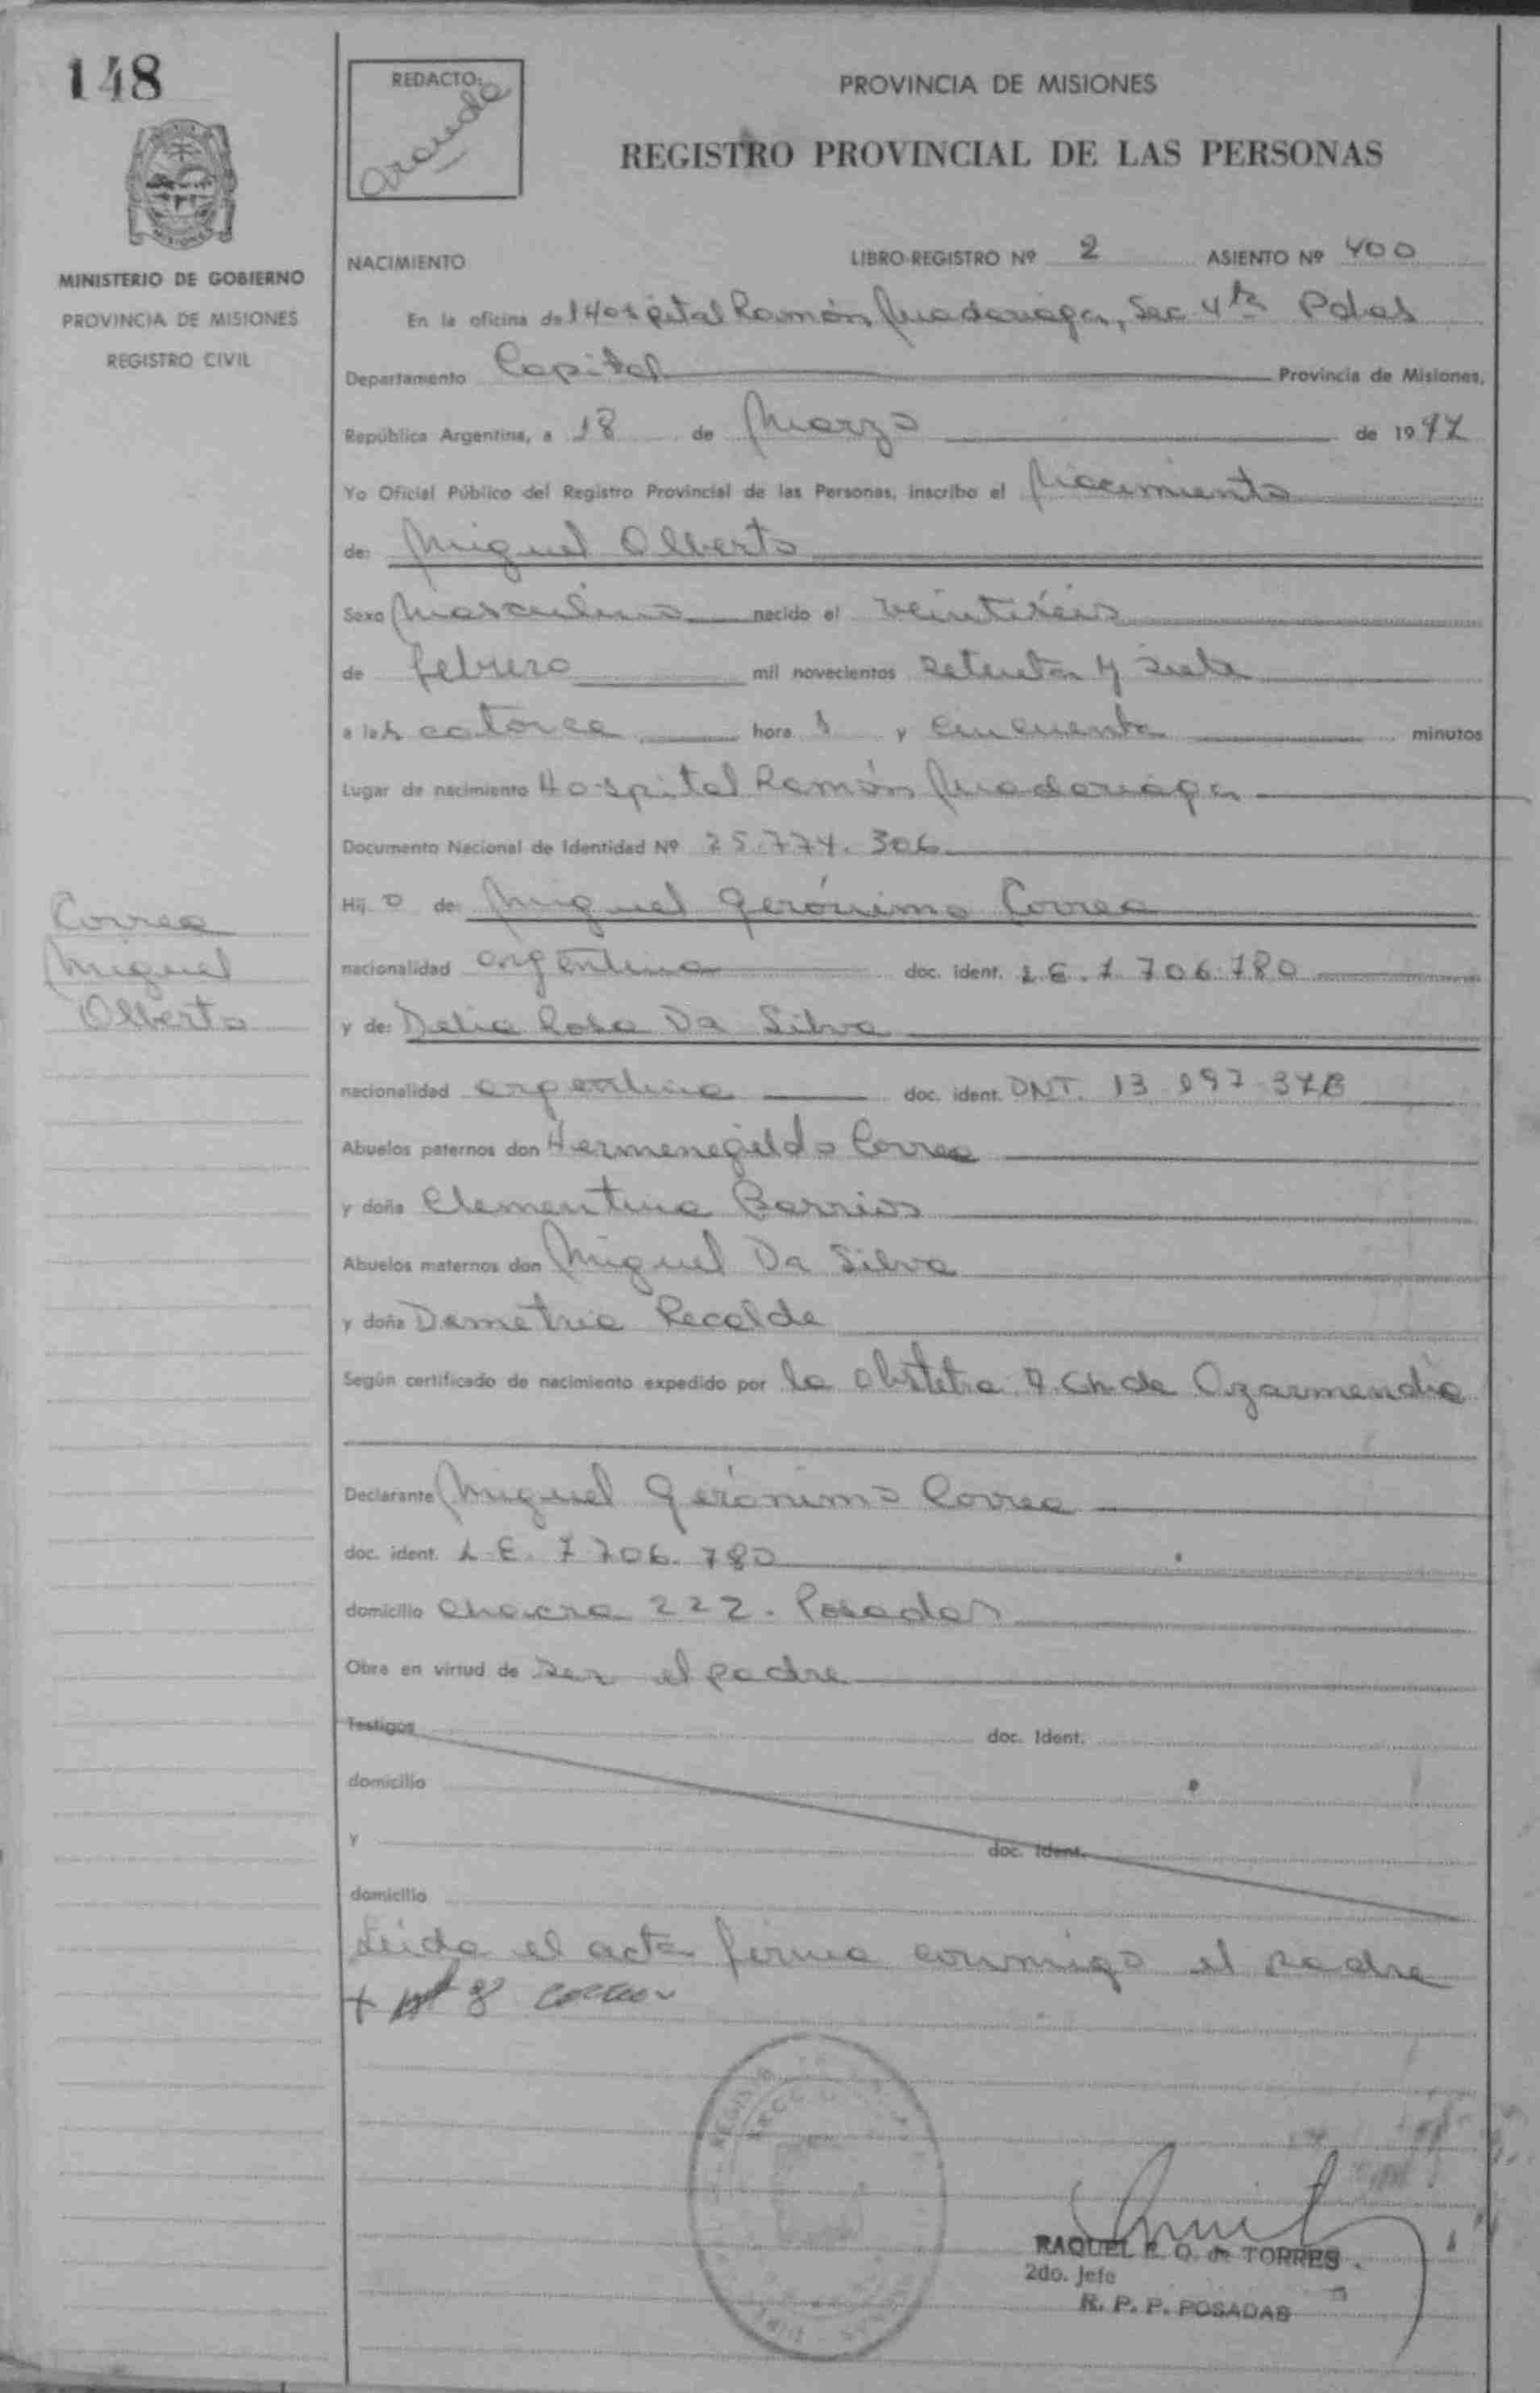 148
REDACTO:
Aranda
PROVINCIA DE MISIONES
REGISTRO PROVINCIAL DE LAS PERSONAS
MISIONES
MINISTERIO DE GOBIERNO
PROVINCIA DE MISIONES
REGISTRO CIVIL
NACIMIENTO LIBRO-REGISTRO Nº 2 ASIENTO Nº 400
En la oficina del Hospital Ramón Madariaga, Sec 4ta Pdas
Departamento Capital Provincia de Misiones,
República Argentina, a 18 de Marzo de 1977
Yo Oficial Público del Registro Provincial de las Personas, inscribo el Nacimiento
de: Miguel Alberto
Sexo Masculino nacido el veintiséis
de febrero mil novecientos setenta y siete
a las catorce hora s y cincuenta minutos
Lugar de nacimiento Hospital Ramón Madariaga
Documento Nacional de Identidad Nº 25.774.306
Hij o de: Miguel Gerónimo Correa
nacionalidad argentina doc. ident. L.E. 7 706.780
y de: Delia Rosa Da Silva
nacionalidad argentina doc. ident. DNT. 13 097 378
Abuelos paternos don Hermenegildo Correa
y doña Clementina Barrios
Abuelos maternos don Miguel Da Silva
y doña Demetria Recalde
Según certificado de nacimiento expedido por la obstetra Ch de Ozarmendia
Declarante Miguel Gerónimo Correa
doc. ident. L.E. 7 706.780
domicilio chacra 222 - Posadas
Obra en virtud de ser el padre
Testigos doc. Ident.
domicilio
y doc. Ident.
domicilio
Leida el acta firma conmigo el padre
Correa
Miguel
Alberto
RAQUEL E. O. de TORRES
2do. Jefe
R. P. P. POSADAS